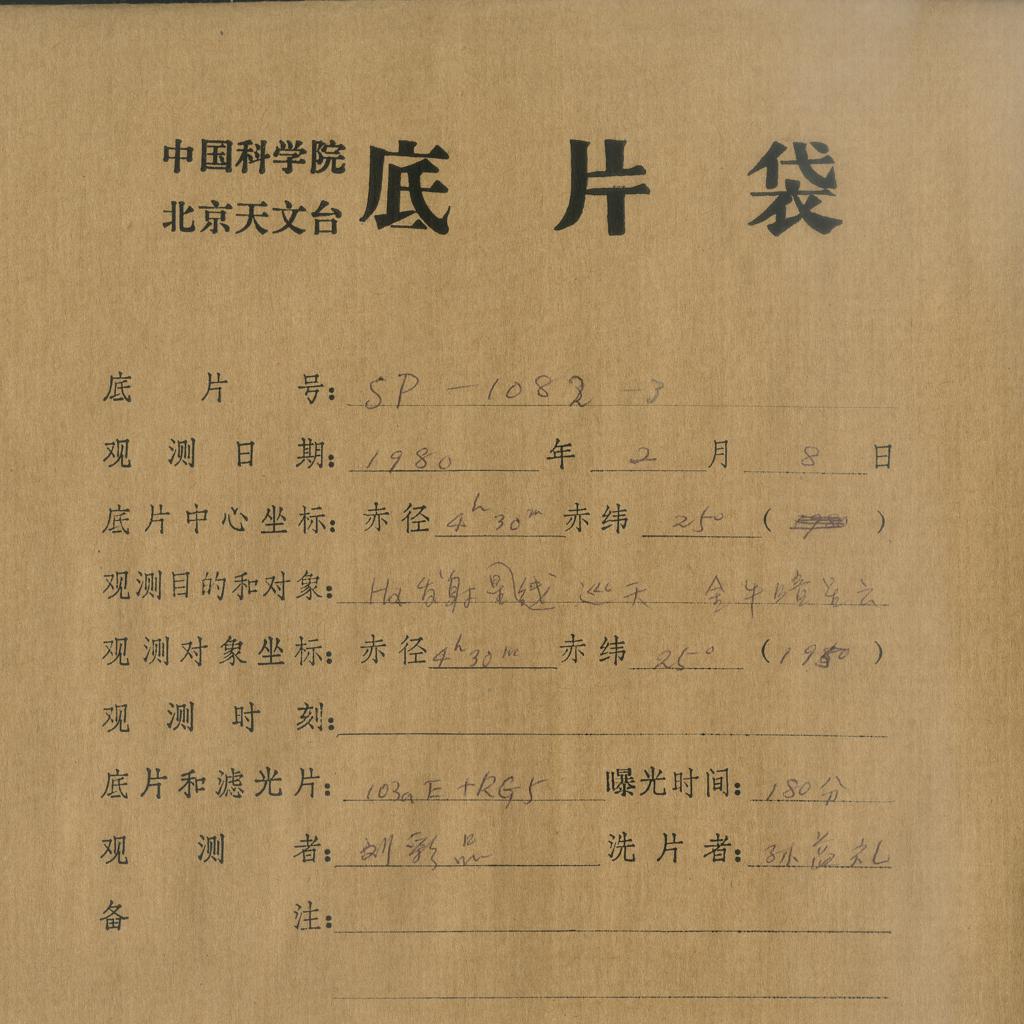 中国科学院
北京天文台
底片袋
底片号: SP-1082-3
观测日期: 1980年2月8日
底片中心坐标: 赤径 4h30m 赤纬 25° ( )
观测目的和对象: Hα发射星线巡天 金牛暗星云
观测对象坐标: 赤径 4h30m 赤纬 25° (1950)
观测时刻:
底片和滤光片: 103aE+RG5 曝光时间: 180分
观测者: 刘彩品 洗片者: 孙益礼
备注: